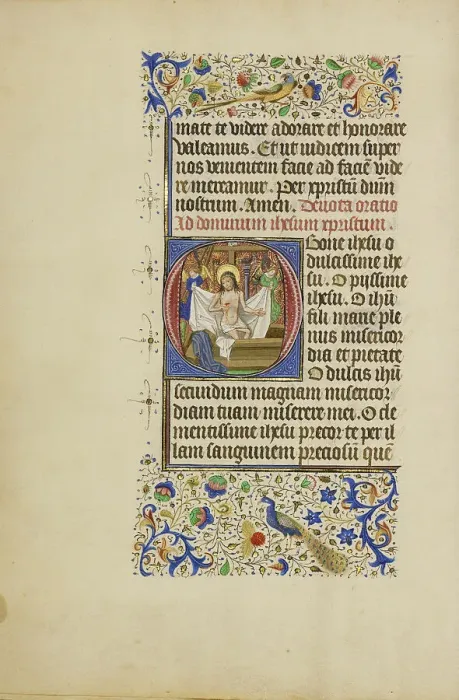 mate te videre adorare et honorare
valeamus. Et ut iudicem super
nos venientem facie ad faciē vide
re mereamur. Per xpristū dūm
nostrum. Amen. Devota oratio
Ad dominum ihesum xpristum.
Bone ihesu o
dulcissime ihe
su. O pyssime
ihesu. O ihū
fili marie ple
nus misericor
dia et pietate
O dulcis ihū
secundum magnam misericor
diam tuam miserere mei. O cle
mentissime ihesu precor te per il
lam sanguinem preciosū que